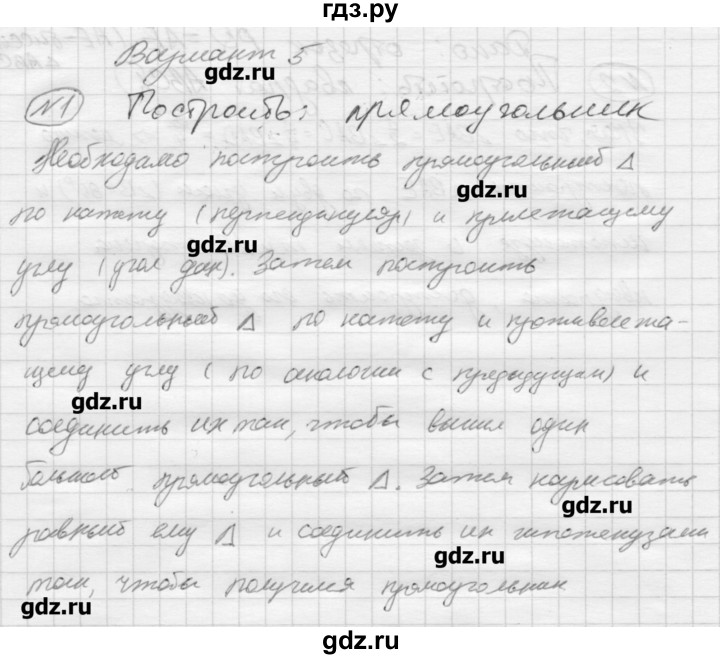 гдз.ру
Вариант 5
gdz.ru
№1 Построить: прямоугольник
Необходамо построить прямоугольный Δ
gdz.ru
по катету (перпендикуляр) и прилежащему
gdz.ru
углу (угол дан). Затем построить
прямоугольный Δ по катету и противолежа-
щему углу (по аналогии с предыдущим) и
gdz.ru
соединить их так, чтобы вышел один
большой прямоугольный Δ. Затем нарисовать
gdz.ru
равный ему Δ и соединить их гипотенузами
gdz.ru
так, чтобы получился прямоугольник
gdz.ru
gdz.ru